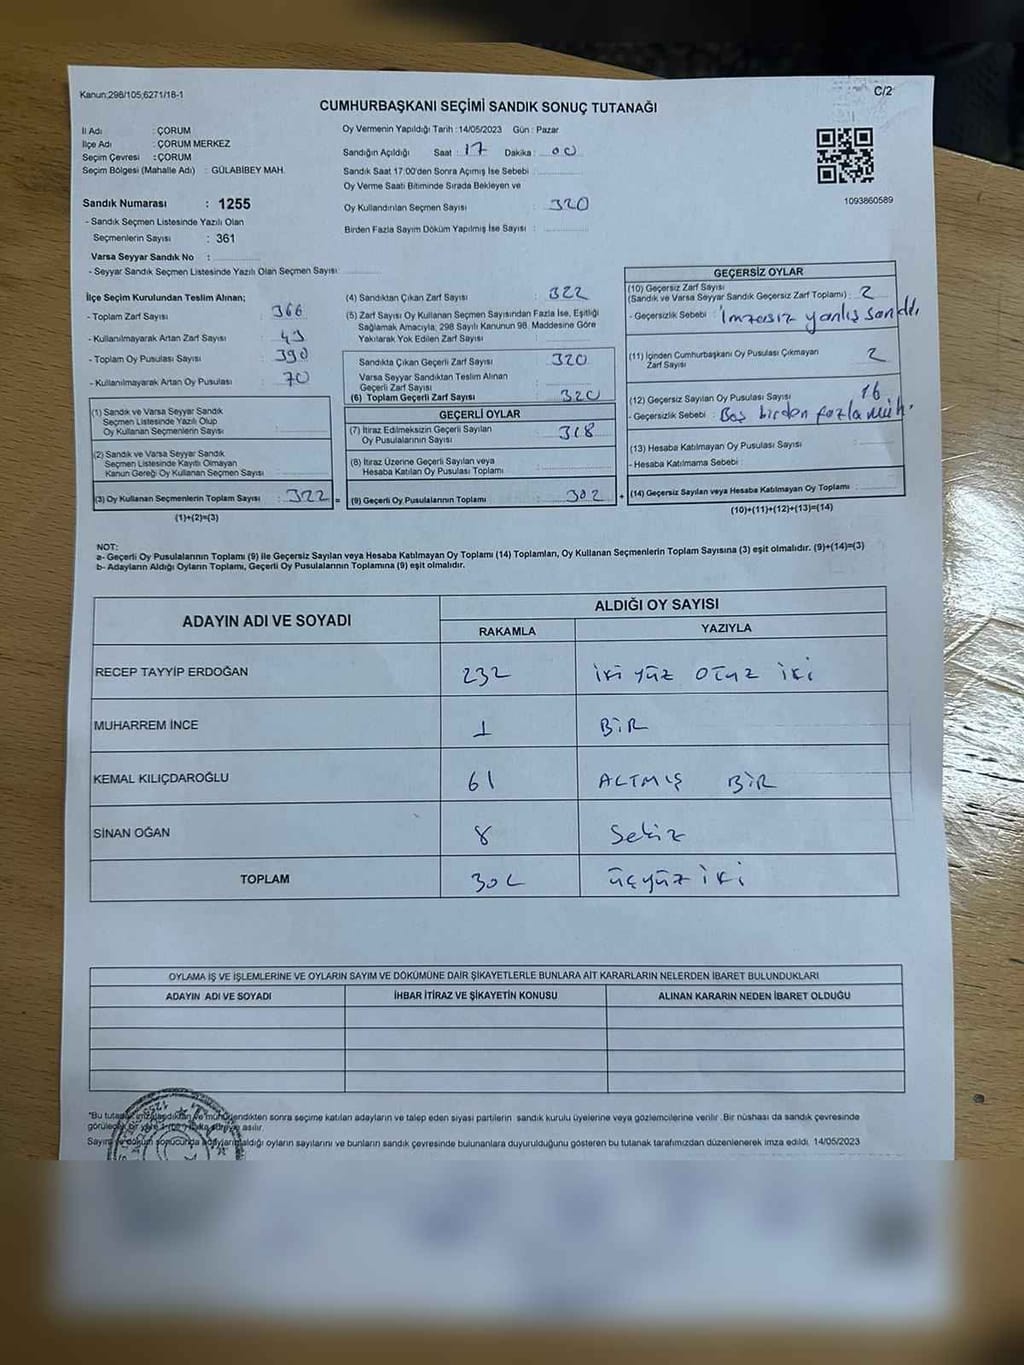 Kanun:298/105;6271/18-1
C/2
CUMHURBAŞKANI SEÇİMİ SANDIK SONUÇ TUTANAĞI
İl Adı : ÇORUM
İlçe Adı : ÇORUM MERKEZ
Seçim Çevresi : ÇORUM
Seçim Bölgesi (Mahalle Adı) : GÜLABİBEY MAH.
Oy Vermenin Yapıldığı Tarih :14/05/2023 Gün : Pazar
Sandığın Açıldığı Saat : 17 Dakika : 00
Sandık Saat 17:00'den Sonra Açımış İse Sebebi :
Oy Verme Saati Bitiminde Sırada Bekleyen ve
Oy Kullandırılan Seçmen Sayısı : 320
Birden Fazla Sayım Döküm Yapılmış İse Sayısı :
1093860589
Sandık Numarası : 1255
- Sandık Seçmen Listesinde Yazılı Olan
Seçmenlerin Sayısı : 361
Varsa Seyyar Sandık No :
- Seyyar Sandık Seçmen Listesinde Yazılı Olan Seçmen Sayısı:
İlçe Seçim Kurulundan Teslim Alınan;
- Toplam Zarf Sayısı : 366
- Kullanılmayarak Artan Zarf Sayısı : 43
- Toplam Oy Pusulası Sayısı : 390
- Kullanılmayarak Artan Oy Pusulası : 70
(1) Sandık ve Varsa Seyyar Sandık
Seçmen Listesinde Yazılı Olup
Oy Kullanan Seçmenlerin Sayısı :
(2) Sandık ve Varsa Seyyar Sandık
Seçmen Listesinde Kayıtlı Olmayan
Kanun Gereği Oy Kullanan Seçmen Sayısı :
(3) Oy Kullanan Seçmenlerin Toplam Sayısı : 322 =
(1)+(2)=(3)
(4) Sandıktan Çıkan Zarf Sayısı : 322
(5) Zarf Sayısı Oy Kullanan Seçmen Sayısından Fazla İse, Eşitliği
Sağlamak Amacıyla, 298 Sayılı Kanunun 98. Maddesine Göre
Yakılarak Yok Edilen Zarf Sayısı :
Sandıkta Çıkan Geçerli Zarf Sayısı : 320
Varsa Seyyar Sandıktan Teslim Alınan
Geçerli Zarf Sayısı :
(6) Toplam Geçerli Zarf Sayısı : 320
GEÇERLİ OYLAR
(7) İtiraz Edilmeksizin Geçerli Sayılan
Oy Pusulalarının Sayısı : 318
(8) İtiraz Üzerine Geçerli Sayılan veya
Hesaba Katılan Oy Pusulası Toplamı :
(9) Geçerli Oy Pusulalarının Toplamı : 302 +
GEÇERSİZ OYLAR
(10) Geçersiz Zarf Sayısı
(Sandık ve Varsa Seyyar Sandık Geçersiz Zarf Toplamı) : 2
- Geçersizlik Sebebi : İmzasız yanlış sandı.
(11) İçinden Cumhurbaşkanı Oy Pusulası Çıkmayan
Zarf Sayısı : 2
(12) Geçersiz Sayılan Oy Pusulası Sayısı : 16
- Geçersizlik Sebebi : Boş birden fazla müh.
(13) Hesaba Katılmayan Oy Pusulası Sayısı :
- Hesaba Katılmama Sebebi :
(14) Geçersiz Sayılan veya Hesaba Katılmayan Oy Toplamı :
(10)+(11)+(12)+(13)=(14)
NOT:
a- Geçerli Oy Pusulalarının Toplamı (9) ile Geçersiz Sayılan veya Hesaba Katılmayan Oy Toplamı (14) Toplamları, Oy Kullanan Seçmenlerin Toplam Sayısına (3) eşit olmalıdır. (9)+(14)=(3)
b- Adayların Aldığı Oyların Toplamı, Geçerli Oy Pusulalarının Toplamına (9) eşit olmalıdır.
ADAYIN ADI VE SOYADI ALDIĞI OY SAYISI
RAKAMLA YAZIYLA
RECEP TAYYİP ERDOĞAN 232 iki yüz otuz iki
MUHARREM İNCE 1 BİR
KEMAL KILIÇDAROĞLU 61 ALTMIŞ BİR
SİNAN OĞAN 8 Sekiz
TOPLAM 302 üçyüz iki
OYLAMA İŞ VE İŞLEMLERİNE VE OYLARIN SAYIM VE DÖKÜMÜNE DAİR ŞİKAYETLERLE BUNLARA AİT KARARLARIN NELERDEN İBARET BULUNDUKLARI
ADAYIN ADI VE SOYADI İHBAR İTİRAZ VE ŞİKAYETİN KONUSU ALINAN KARARIN NEDEN İBARET OLDUĞU
"Bu tutanak imzalandıktan ve mühürlendikten sonra seçime katılan adayların ve talep eden siyasi partilerin sandık kurulu üyelerine veya gözlemcilerine verilir .Bir nüshası da sandık çevresinde
görülecek bir yere süreyle asılır.
Sayım ve döküm sonucunda adayların aldığı oyların sayılarını ve bunların sandık çevresinde bulunanlara duyurulduğunu gösteren bu tutanak tarafımızdan düzenlenerek imza edildi. 14/05/2023